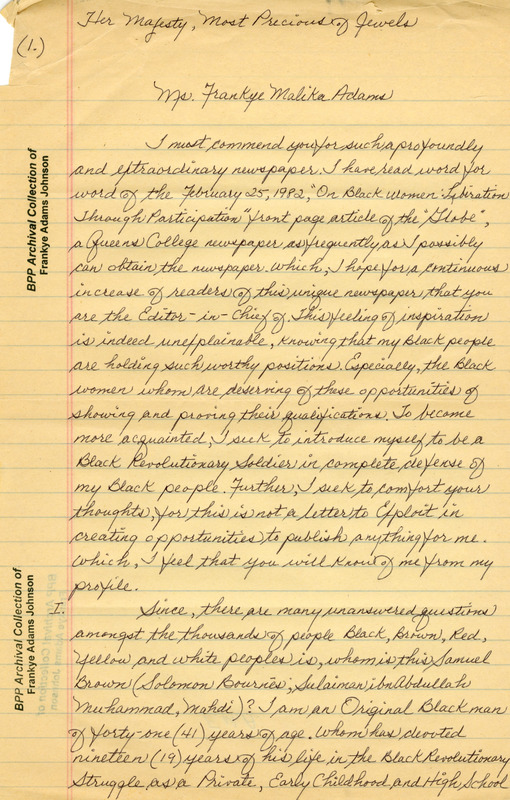 Her Majesty, Most Precious of Jewels
(1.)
Ms. Frankye Malika Adams
I must commend you for such a profoundly
and extraordinary newspaper. I have read word for
word of the February 25, 1982, "On Black Women: Libiration
Through Participation" front page article of the "Globe",
a Queens College newspaper as frequently as I possibly
can obtain the newspaper. Which, I hope for a continuous
increase of readers of this unique newspaper that you
are the Editor-in-Chief of. This feeling of inspiration
is indeed unexplainable, knowing that my Black people
are holding such worthy positions. Especially, the Black
women whom are deserving of these opportunities of
showing and proving their qualifications. To become
more acquainted, I seek to introduce myself to be a
Black Revolutionary Soldier in complete defense of
my Black people. Further, I seek to comfort your
thoughts, for this is not a letter to Exploit in
creating opportunities to publish anything for me.
Which, I feel that you will know of me from my
profile.
I. Since, there are many unanswered questions
amongst the thousands of people Black, Brown, Red,
Yellow and white peoples is, whom is this Samuel
Brown (Solomon Bournes; Sulaiman ibn Abdullah
Muhammad, Mahdi)? I am an Original Black man
of forty-one (41) years of age. Whom has devoted
nineteen (19) years of his life in the Black Revolutionary
Struggle as a Private, Early Childhood and High School
BPP Archival Collection of
Frankye Adams Johnson
BPP Archival Collection of
Frankye Adams Johnson